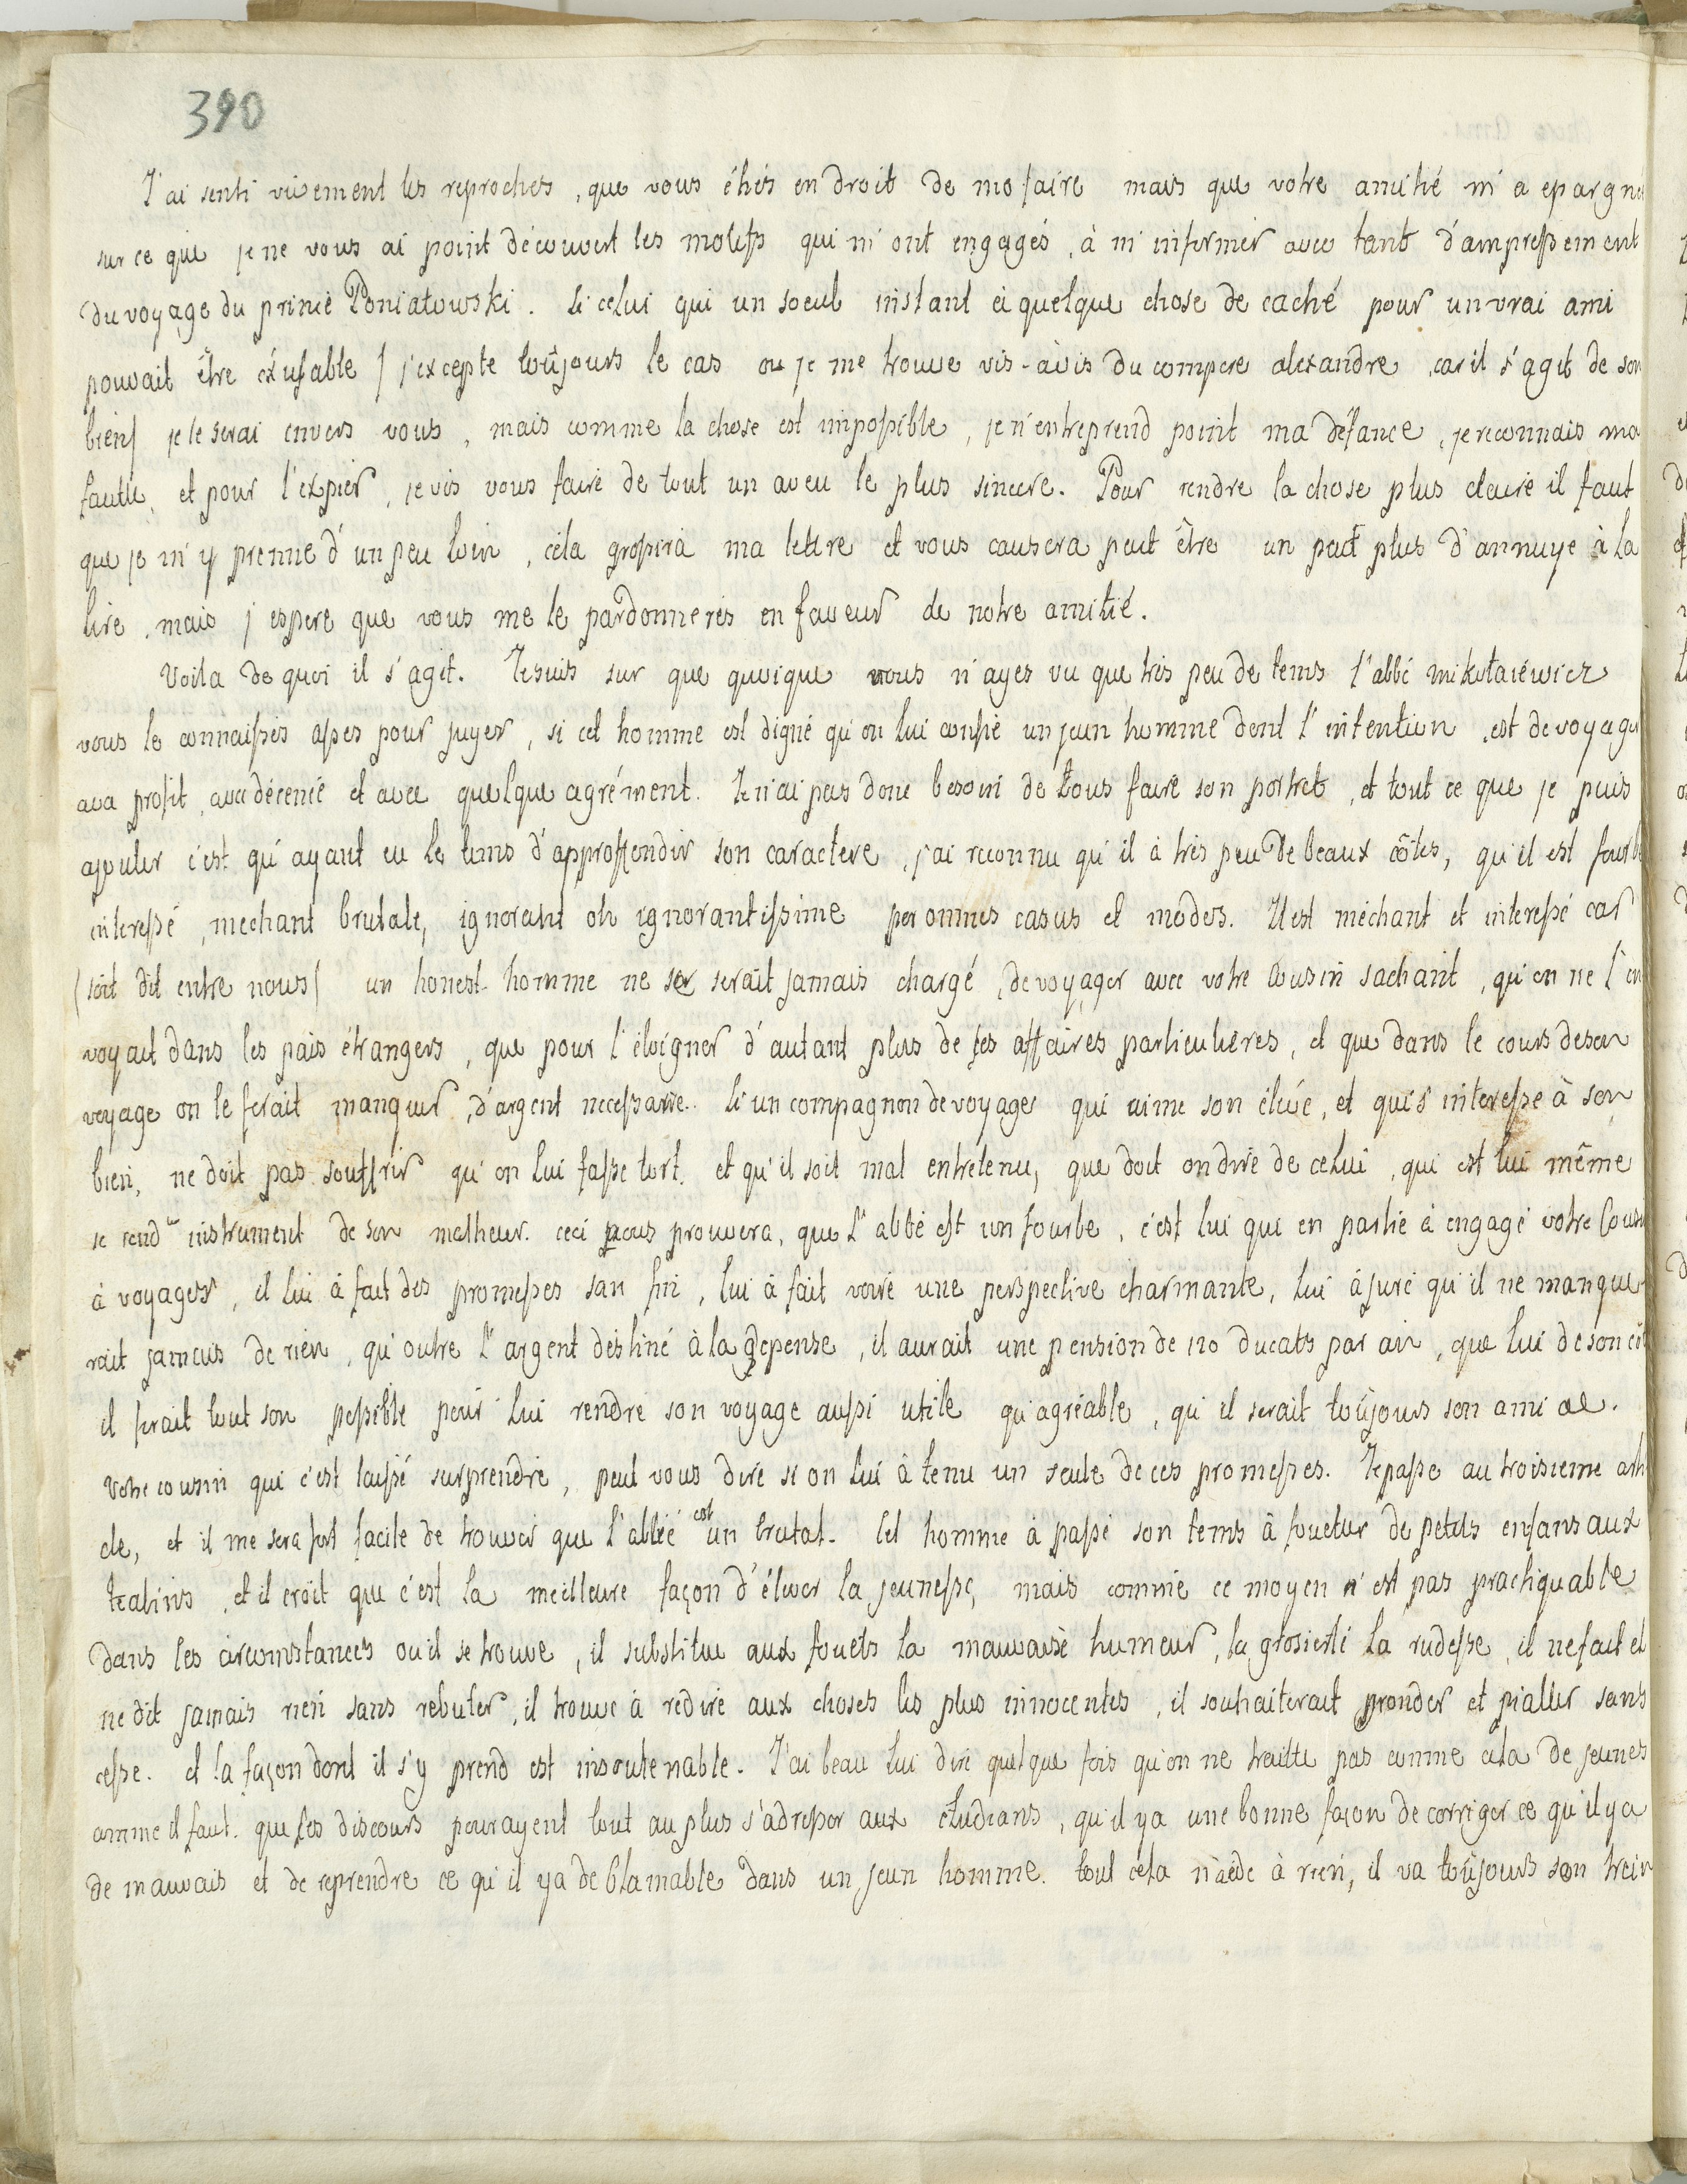 390
J'ai senti vivement les reproches, que vous étiés en droit de me faire mais que votre amitié m'a epargné
sur ce que je ne vous ai point découvert les motifs qui m'ont engagés, à m'informer avec tant d'ampressement
du voyage du prince Poniatowski. Si celui qui un soeul instant à quelque chose de caché pour un vrai ami
pouvait être éxusable / j'excepte toûjours le cas ou je me trouve vis-àvis du compere alexandre, car il s'agit de son
bien / je le serai envers vous, mais comme la chose est impossible, je n'entreprend point ma défance, je reconnais ma
faute, et pour l'expier, je vis vous faire de tout un aveu le plus sincere. Pour rendre la chose plus claire il faut
que je m'y prenne d'un peu loin, cela grossira ma lettre et vous causera peut être un peut plus d'annuye à la
lire, mais j'espere que vous me le pardonnerés en faveur de notre amitié.
Voila de quoi il s'agit. Je suis sur que quoique vous n'ayes vu que très peu de tems l'abbé mikutaiéwicz
vous le connaissés asses pour juger, si cet homme est digne qu'on lui confie un jeun homme dont l'intention, est de voyager
avec profit, avec décence et avec quelque agrément. Je n'ai pas donc besoin de vous faire son portret, et tout ce que je puis
ajouter c'est qu'ayant eu le tems d'approffondir son caractere, j'ai reconnu qu'il à très peu de beaux côtes, qu'il est fourbe
interessé, mechant brutale, ignorant oh ignorantissime per omnes casus et modos. Il est méchant et interessé car
(soit dit entre nous) un honest homme ne se serait jamais chargé, de voyager avec votre Cousin sachant, qu'on ne l'en
voyait dans les païs étrangers, que pour l'éloigner d'autant plus de ses affaires particulieres, et que dans le cours de son
voyage on le ferait manquer, d'argent necessaire. Si un compagnon de voyage qui aime son éleve, et qui s'interesse à son
bien, ne doit pas souffrir qu'on lui fasse tort, et qu'il soit mal entretenu, que doit on dire de celui, qui est lui même
se rend un instrument de son malheur. ceci vous prouvera, que l'abbé est un fourbe, c'est lui qui en partie à engagé votre Cousin
à voyager, il lui à fait des promesses san fin, lui à fait voire une perspective charmante, lui à juré qu'il ne manque-
rait jamais de rien, qu'outre l'argent destiné à la depense, il aurait une pension de 120 ducats par an, que lui de son cöt
il ferait tout son possible pour lui rendre son voyage aussi utile qu'agréable, qu'il serait toûjours son ami &c.
Votre cousin qui c'est laissé surprendre, peut vous dire si on lui à tenu un seule de ces promesses. Je passe au troisieme arti
cle, et il me sera fort facile de trouver que l'abbé est un brutal. Cet homme à passé son tems à foueter de petits enfans aux
teatins, et il croit que c'est la meilleure façon d'élever la jeunesse, mais comme ce moyen n'est pas practiquable
dans les circonstances ou il se trouve, il substitue aux fouets la mauvaise humeur, la grosierté la rudesse, il ne fait et
ne dit jamais rien sans rebuter, il trouve à redire aux choses les plus innocentes, il souhaiterait gronder et pialler sans
cesse. et la façon dont il s'y prend est insoutenable. J'ai beau lui dire quelque fois qu'on ne traitte pas comme cela de jeunes
comme il faut. que ses discours pourayent tout au plus s'adresser aux étudians, qu'il ya une bonne façon de corriger ce qu'il ya
de mauvais et de reprendre ce qu'il ya de blamable dans un jeun homme. tout cela n'aide à rien, il va toûjours son trein